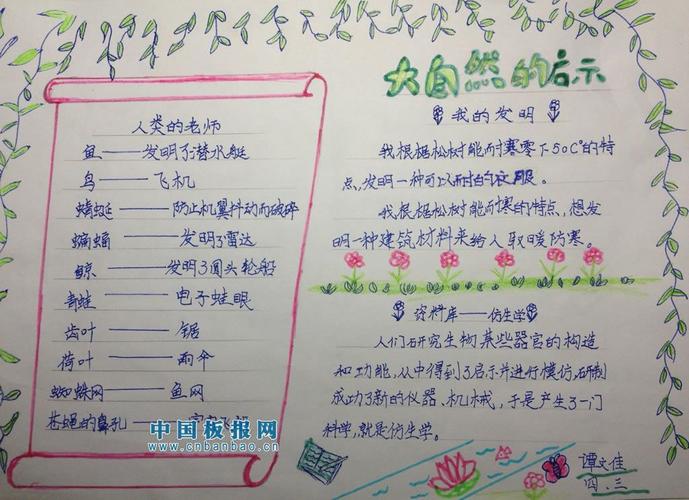 大自然的启示
人类的老师
鱼——发明了潜水艇
鸟——飞机
蜻蜓——防止机翼抖动而破碎
蝙蝠——发明了雷达
鲸——发明了圆头轮船
青蛙——电子蛙眼
齿叶——锯
荷叶——雨伞
蜘蛛网——鱼网
苍蝇的鼻孔——
我的发明
我根椐松树能耐寒零下50C°的特
点,发明一种可以耐的衣服。
我根椐松树能耐寒的特点,想发
明一种建筑材料来给人取暖防寒。
资料库——仿生学
人们研究生物某些器官的构造
和功能,从中得到了启示并进行模仿,研制
成功了新的仪器、机械,于是产生了一门
科学,就是仿生学。
谭文佳
四.三
中国板报网
www.cnbanbao.cn